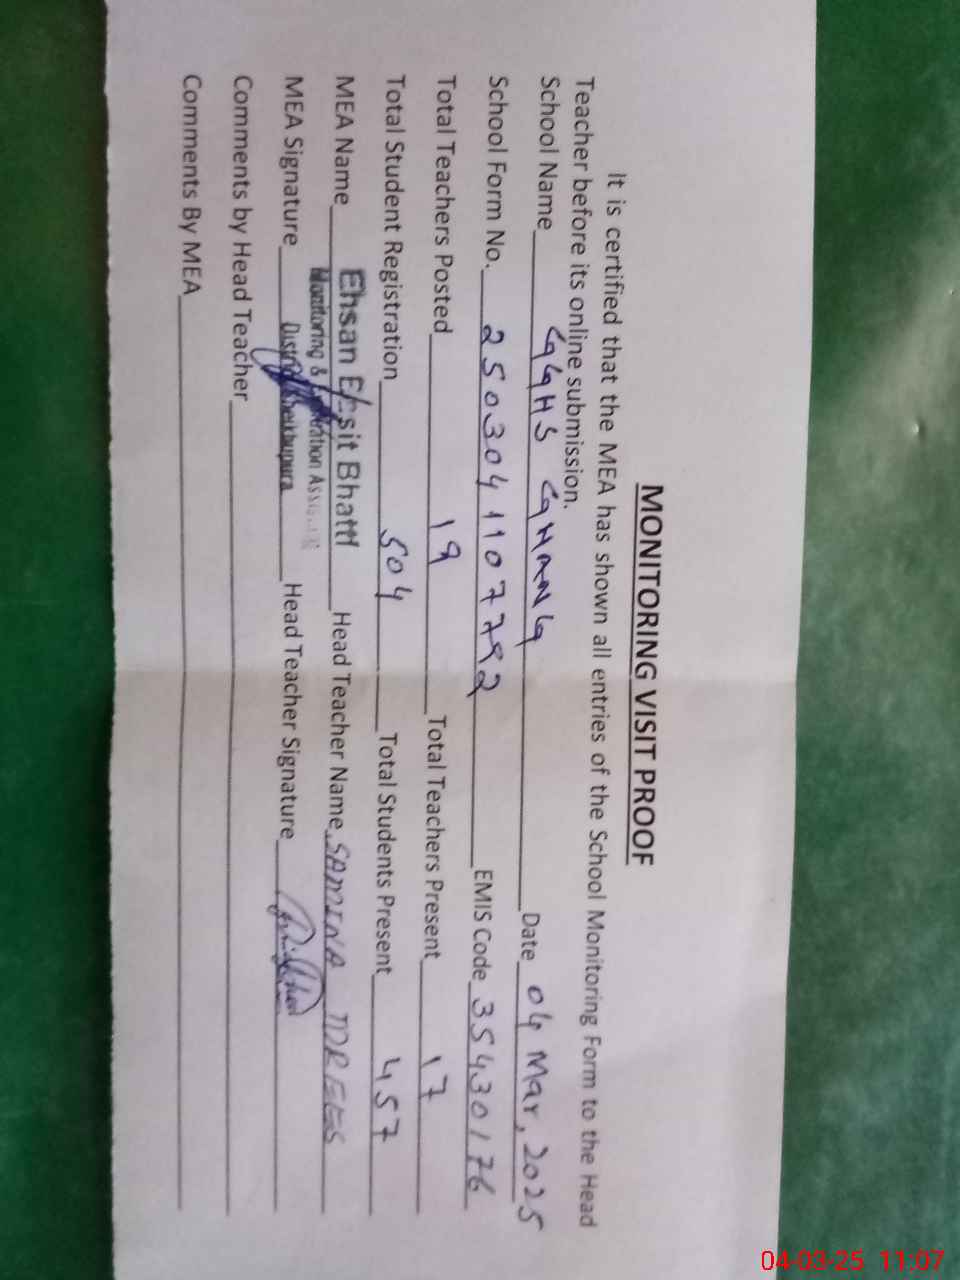 MONITORING VISIT PROOF
It is certified that the MEA has shown all entries of the School Monitoring Form to the Head
Teacher before its online submission.
School Name GGHS GHANG Date 04 Mar, 2025
School Form No. 2503041107792 EMIS Code 35430176
Total Teachers Posted 19 Total Teachers Present 17
Total Student Registration 504 Total Students Present 457
MEA Name Ehsan Bhatti Head Teacher Name SAMINA IDREES
Monitoring &
MEA Signature Sheikhupura Head Teacher Signature
Comments by Head Teacher
Comments By MEA
04-03-25 11:07